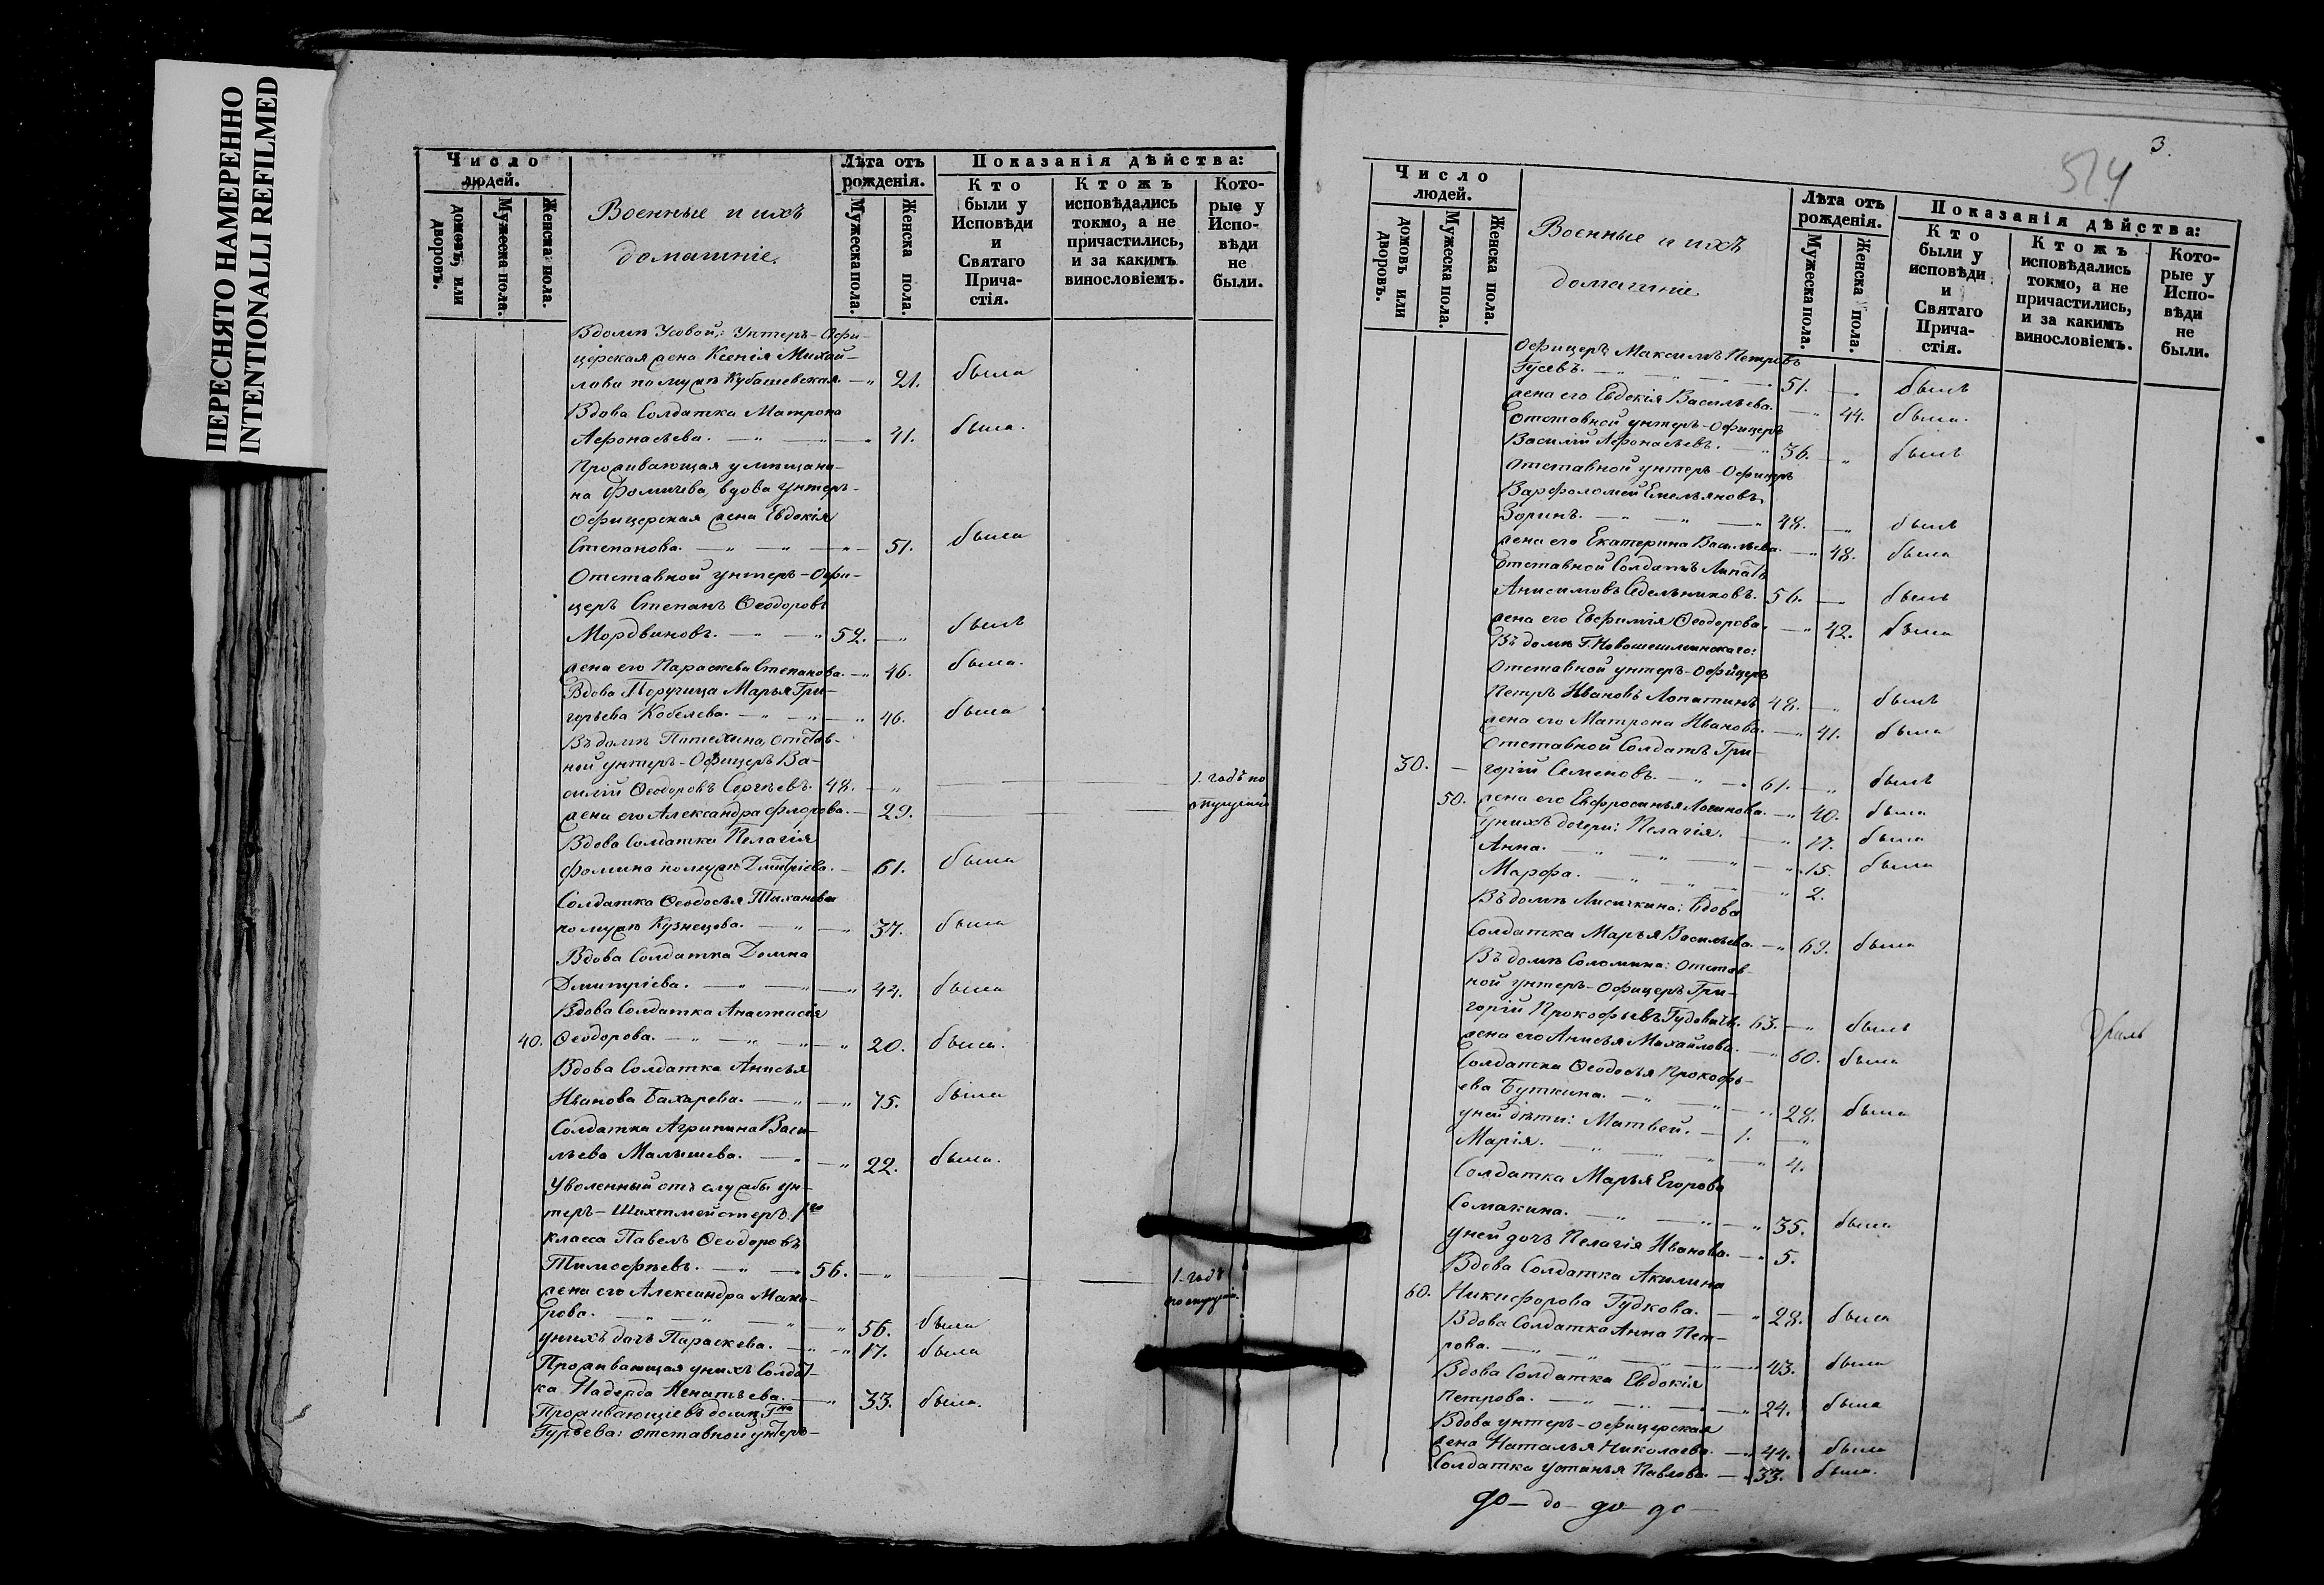 ПЕРЕСНЯТО НАМЕРЕННО
INTENTIONALLI REFILMED
Число людей.
домовъ, или дворовъ.
Мужеска пола.
Женска пола.
Военные и ихъ
домашніе.
Лѣта отъ рожденія.
Мужеска пола.
Женска пола.
Показанія дѣйства:
Кто были у Исповѣди и Святаго Прича- стія.
Ктожъ исповѣдались токмо, а не причастились, и за какимъ винословіемъ.
Кото- рые у Испо- вѣди не были.
Вдомѣ Усовой: Унтеръ-Офи-
церская жена Ксенія Михай-
лова по мужѣ Кубашевская. — 21. была
Вдова Солдатка Матрона
Афонасьева. — „ — 41. была.
Проживающая у мѣщани-
на Фомичева, вдова Унтеръ-
Офицерская жена Евдокія
Степанова. — „ — „ — 51. была
Отставной Унтеръ-Офи-
церъ Степанъ Ѳеодоровъ
Мордвиновъ. — „ — „ 52. — „ былъ
жена его Параскева Степанова. — „ 46. была.
Вдова Поручица Марья Гри-
горьева Кобелева. — „ — „ — „ 46. была
Въ домѣ Потехина, отстав-
ной унтеръ-Офицеръ Ва-
силій Ѳеодоровъ Сергѣевъ. 48. — „ — 1. годъ по
жена его Александра Флорова. — 29. — опущенію
Вдова Солдатка Пелагія
Фомина по мужѣ Дмитріева. — 61. была
Солдатка Ѳеодосья Тиханова
по мужѣ Кузнецова. — „ — „ 37. была
Вдова Солдатка Домна
Дмитріева. — „ — „ — „ 44. была
Вдова Солдатка Анастасія
40. Ѳеодорова. — „ — „ — „ 20. была.
Вдова Солдатка Анисья
Иванова Бахарева. — „ — „ 75. была
Солдатка Агрипина Васи-
льева Малышева. — „ — „ 22. была.
Уволенный отъ службы ун-
теръ-Шихтмейстеръ 1го
класса Павелъ Ѳеодоровъ
Тимофѣевъ. — „ — 56. — „ — 1. годъ
жена его Александра Мака-
рова. — „ — „ — „ 56. была
у нихъ дочь Параскева. — „ — „ 17. была
Проживающая у нихъ Солдат-
ка Надежда Игнатьева. — „ 33. была.
Проживающіе въ домѣ Гна
Гурьева: отставной унтеръ-
3.
574
Число людей.
домовъ или дворовъ.
Мужеска пола.
Женска пола.
Военные и ихъ
домашніе
Лѣта отъ рожденія.
Мужеска пола.
Женска пола.
Показанія дѣйства:
Кто были у исповѣди и Святаго Прича- стія.
Ктожъ исповѣдались токмо, а не причастились, и за какимъ винословіемъ.
Кото- рые у Испо- вѣди не были.
Офицеръ Максимъ Петровъ
Гусевъ. — „ — 51. — былъ
жена его Евдокія Васильева. — „ 44. была.
Отставной унтеръ-Офицеръ
Василій Афонасьевъ. — „ 36. — „ былъ
Отставной унтеръ-Офицеръ
Варфоломей Емельяновъ
Зоринъ. — „ — „ — „ 48. — „ былъ
жена его Екатерина Васильева. — „ 48. была
Отставной Солдатъ Липатъ
Анисимовъ Седельниковъ. 56. — былъ
жена его Евфимія Ѳеодорова. — „ 42. была
Въ домѣ Г. Новошешминскаго:
Отставной унтеръ-Офицеръ
Петръ Ивановъ Лопатинъ 48. — былъ
жена его Матрона Иванова. — „ 41. была
Отставной Солдатъ Гри-
30. — горій Семеновъ. — „ — 61. — „ былъ
50. жена его Евфросинья Логинова. — „ 40. была
у нихъ дочери: Пелагія. — „ 17. была
Анна. — „ — „ — „ 15. была
Марфа. — „ — „ — „ 2.
Въ домѣ Лисичкина: Вдова
Солдатка Марья Васильева. — „ 62. была
Въ домѣ Соломина: Отстав-
ной унтеръ-Офицеръ Гри-
горій Прокофьевъ Гудовичъ. 63. — „ былъ
жена его Анисья Михайлова. — „ 60. была
Солдатка Ѳеодосья Прокофь-
ева Буткина. — „ — „ 28. была
у ней дѣти: Матвей. — 1. — „
Марія. — „ — „ — „ 4.
Солдатка Марья Егорова
Сомакина. — „ — „ — „ 35. была
у ней дочь Пелагія Иванова. — „ 5.
Вдова Солдатка Акилина
60. Никифорова Гудкова. — „ 28. была
Вдова Солдатка Анна Пет-
рова. — „ — „ — „ 43. была
Вдова Солдатка Евдокія
Петрова. — „ — „ — „ 24. была
Вдова унтеръ-офицерская
жена Наталья Николаева. — „ 44. была
Солдатка Устинья Павлова. — 33. была.
до — до — до — до —